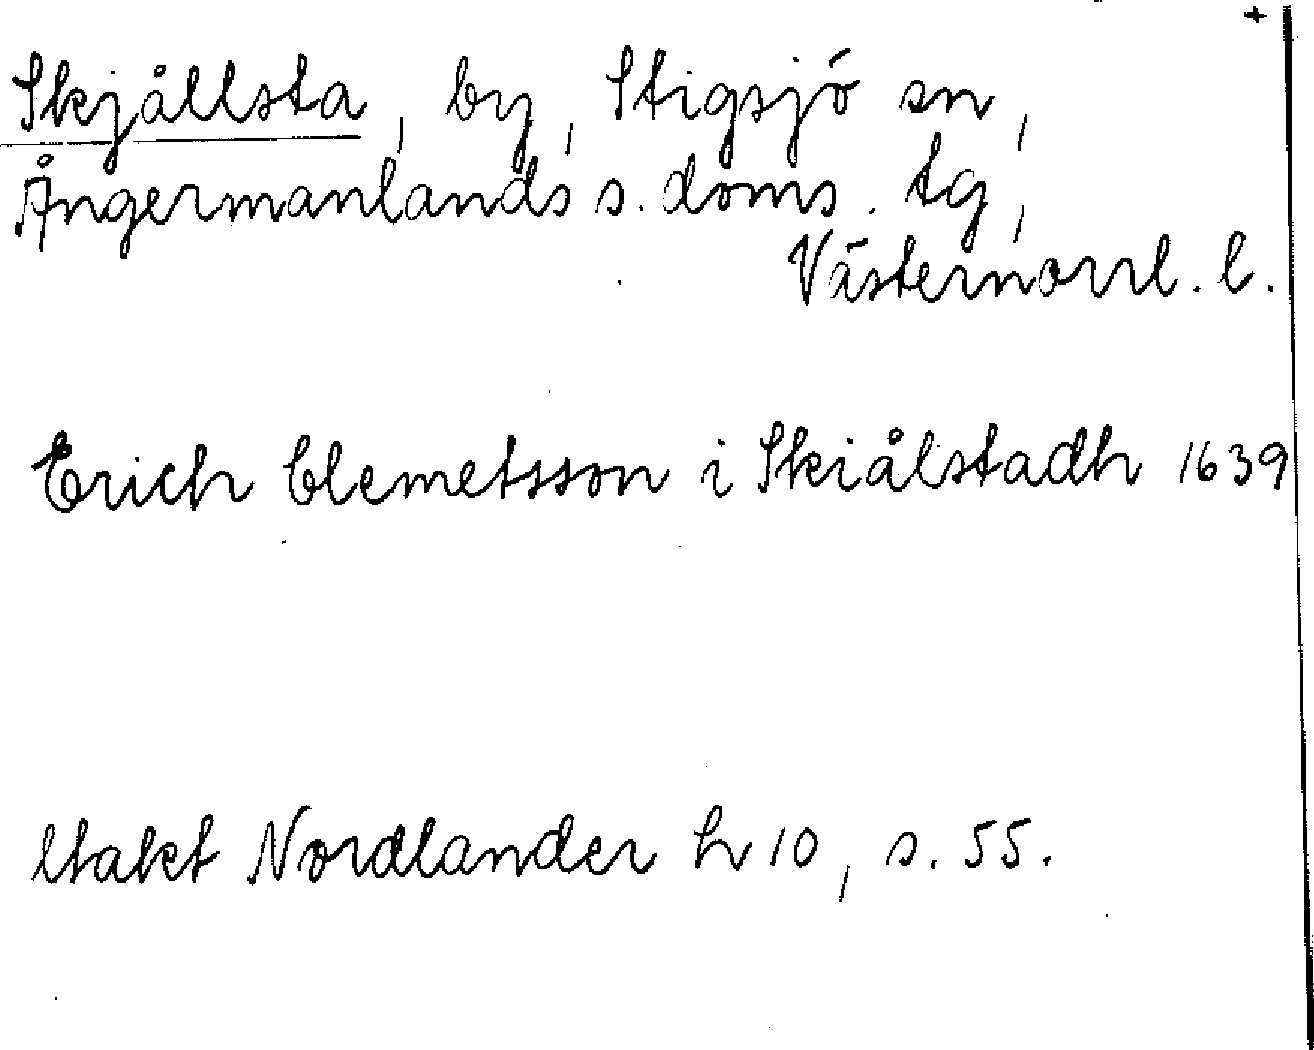 +
Skjållsta, by, Stigsjö sn,
Ångermanlands s. doms. tg,
Västernorrl. l.
Erich Clemetsson i Skiålstadh 1639
Utakt Nordlander h 10, s. 55.